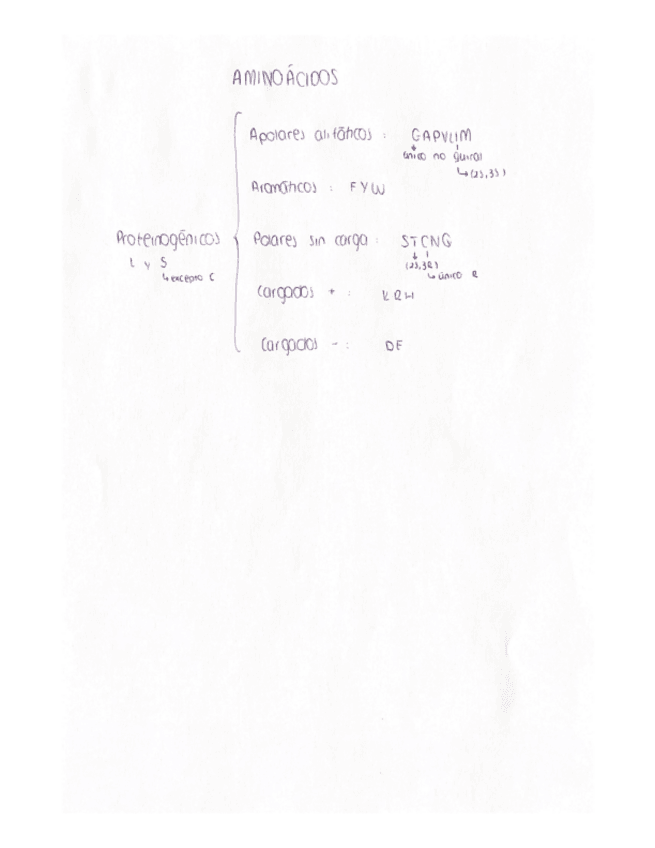 AMINOÁCIDOS
Apolares alifáticos : GAPVLIM
único no quiral
↳ (2S,3S)
Aromáticos : FYW
Proteinogénicos
L y S
↳ excepto C
Polares sin carga : STCNQ
(2S,3R)
↳ único R
Cargados + : KRH
Cargados - : DE